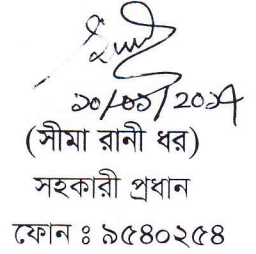 ১০/০১/২০১৭
(সীমা রানী ধর)
সহকারী প্রধান
ফোন ঃ ৯৫৪০২৫৪